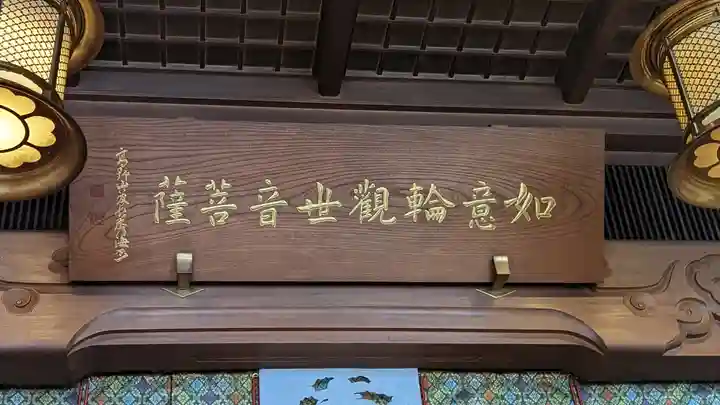 如意輪觀世音菩薩
高野山